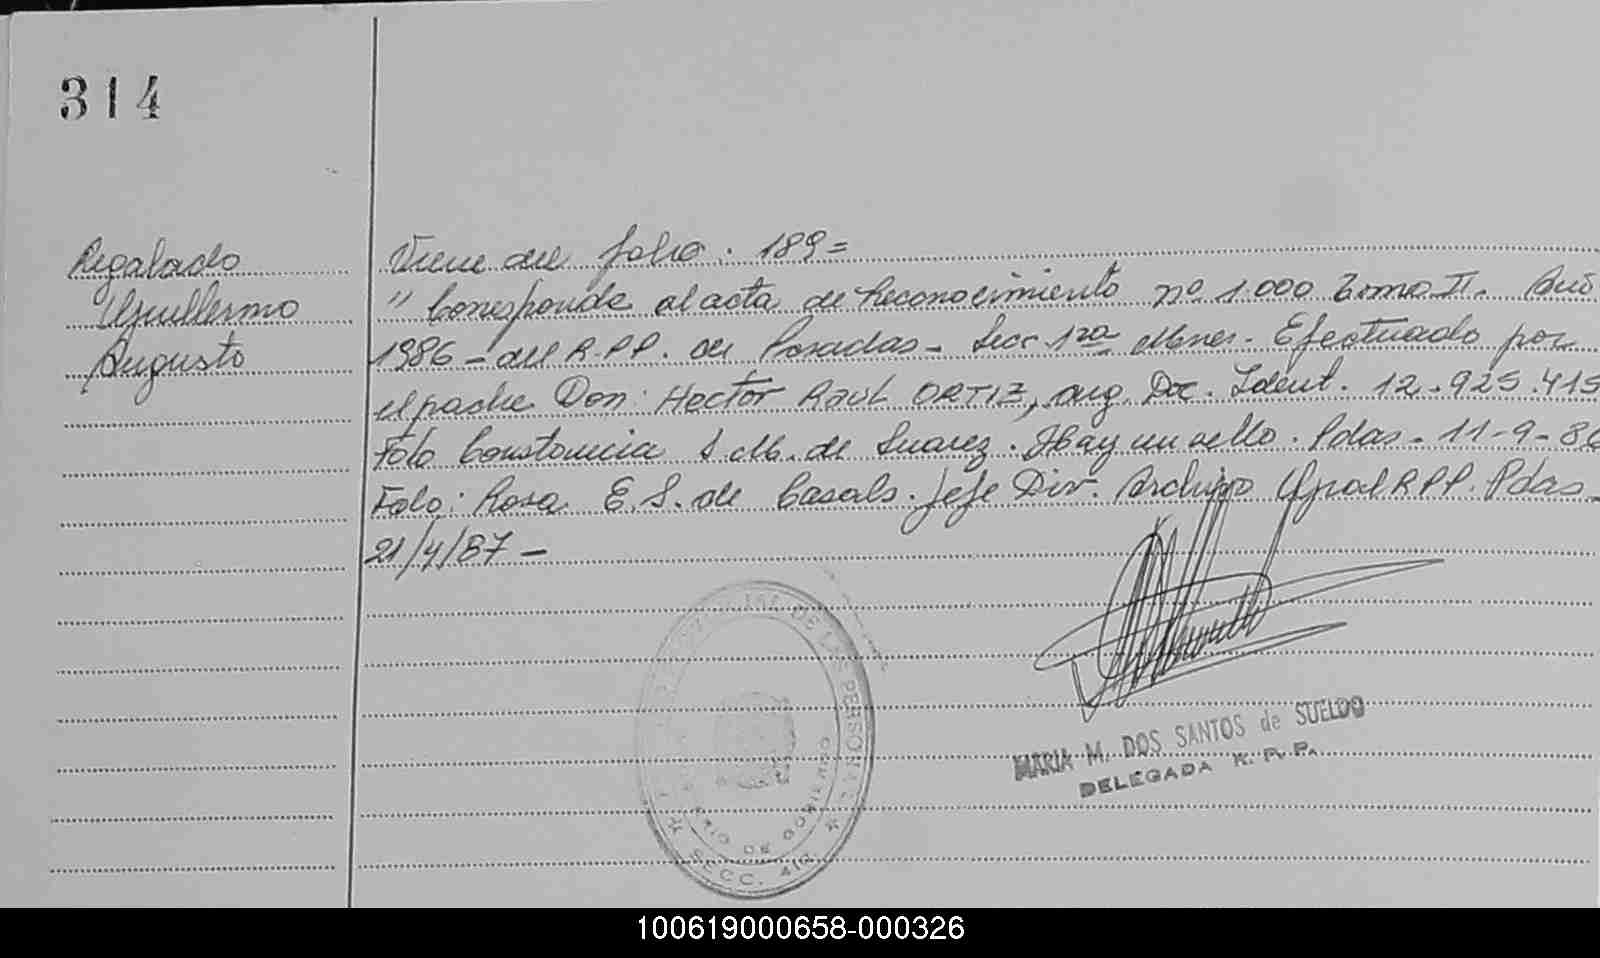 314
Regalado
Guillermo
Augusto
Viene del folio. 189=
" Corresponde al acta de Reconocimiento nº 1.000 Tomo II. Año
1986 - del R.P.P. de Posadas - Secc 1ra Mnes. Efectuado por
el padre Don: Hector Raul ORTIZ, arg. Doc. Ident. 12.925.415
Fdo Constancia S. M. de Suarez. Hay un sello. Pdas - 11-9-86
Fdo: Rosa E. S. de Casals. Jefe Div. Archivo Gral RPP. Pdas -
21/4/87 -
DE LAS PERSONAS
DE GOBIERNO
SECC. 4ta.
MARIA M. DOS SANTOS de SUELDO
DELEGADA R. P. P.
100619000658-000326